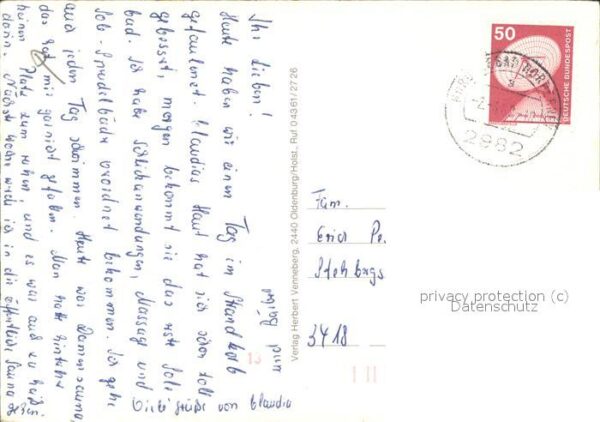 Ihr Lieben!
Heute haben wir einen Tag im Strandkorb
gefaulenzt. Claudias Haut hat sich schon toll
gebessert, morgen bekommt sie das erste Sole
bad. Ich habe Schlickanwendungen, Massag und
Sole-Sprudelbäder verordnet bekommen. Ich gehe
auch jeden Tag schwimmen. Heute war Damensauna,
das hat mir gar nicht gefallen. Man hatte hinterher
keinen Platz zum ruhen, und es war auch zu heiß
darin. Nächste Woche werde ich in die öffentliche Sauna gehen.
Viele Grüße von Claudia
Verlag Herbert Venneberg, 2440 Oldenburg/Holst., Ruf 04361/2726
50
DEUTSCHE BUNDESPOST
2982
Fam.
Erich Pe.
3418
privacy protection (c)
Datenschutz